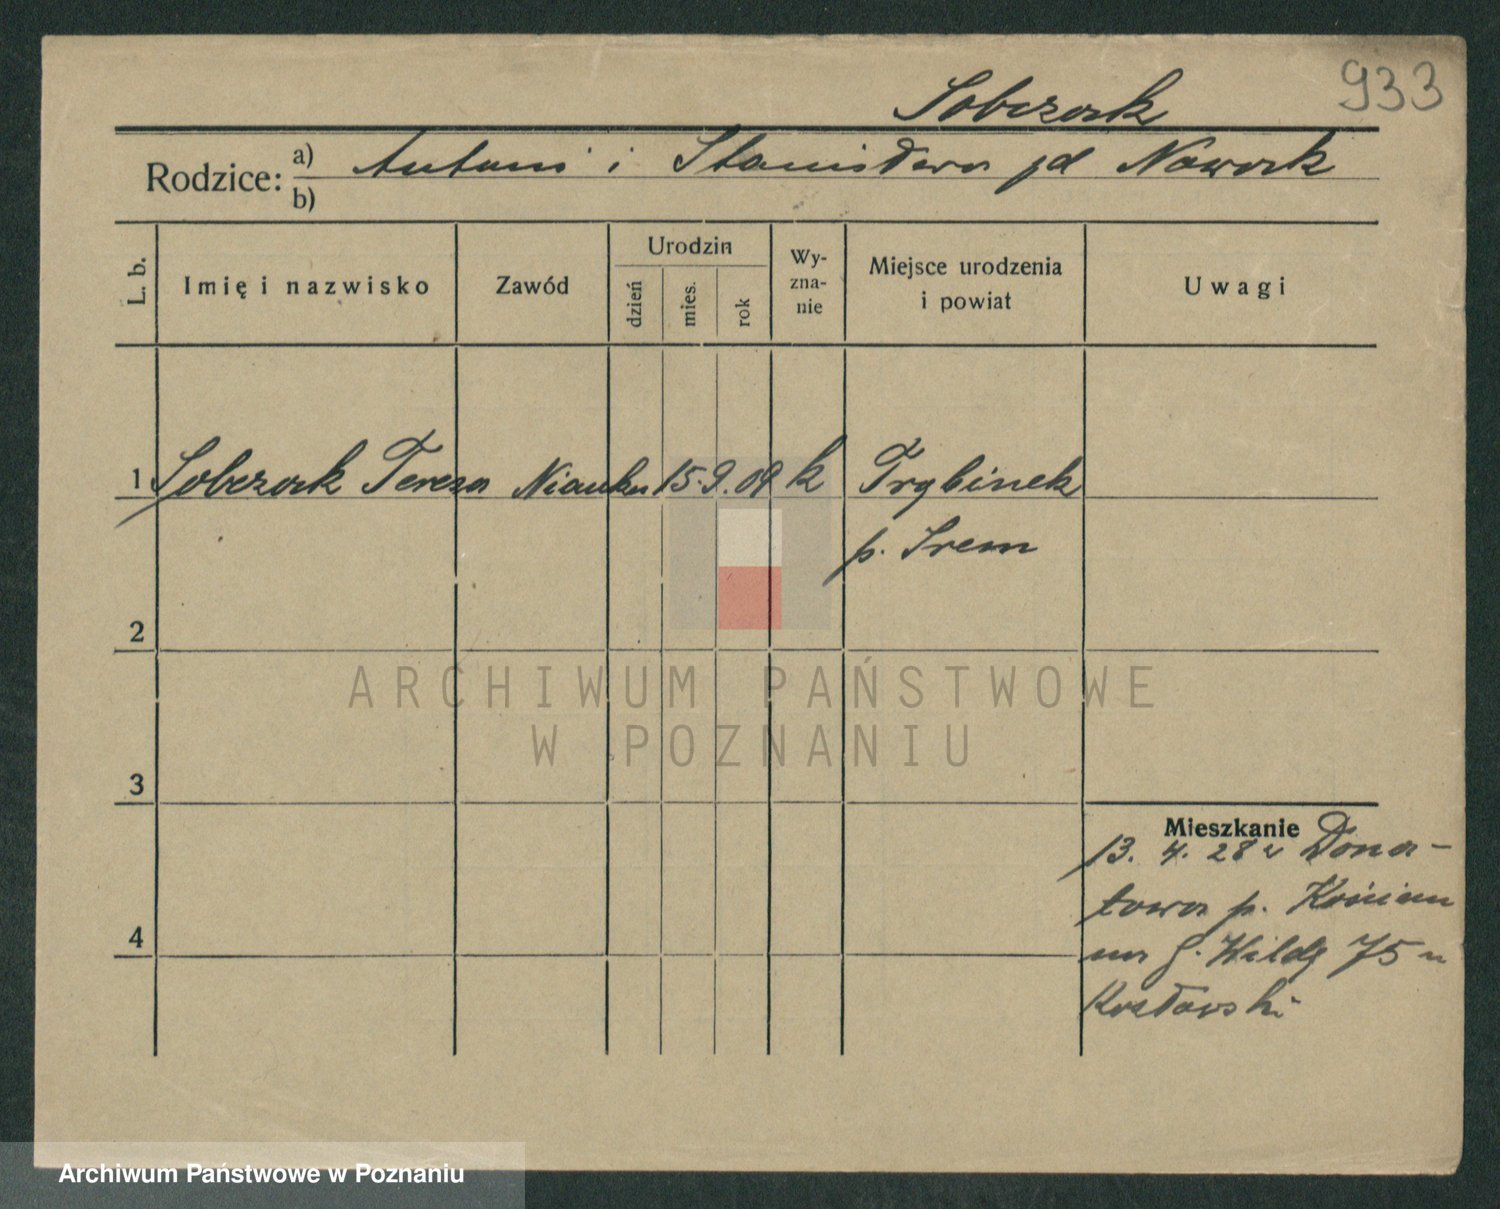 933
Sobczak
Rodzice: a) Antoni i Stanisława zd Nowak
b)
L. b.
Imię i nazwisko
Zawód
Urodzin
dzień
mies.
rok
Wy-
zna-
nie
Miejsce urodzenia
i powiat
Uwagi
1 Sobczak Teresa Nianka 15. 9. 09 k Trąbinek
p. Śrem
2
3
4
Mieszkanie
13. 4. 28 z Dona-
towa p. Kościan
na G. Wildę 75 u
Kozłowski
ARCHIWUM PAŃSTWOWE
W POZNANIU
Archiwum Państwowe w Poznaniu